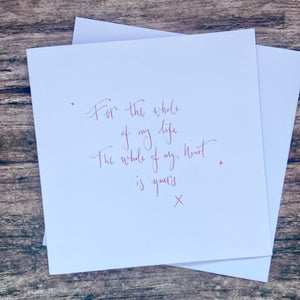 For the whole
of my life
The whole of my heart
is yours
X